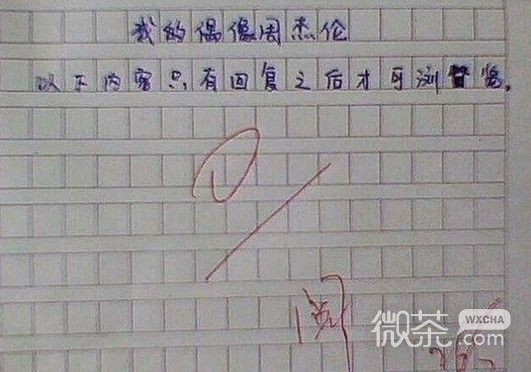 我的偶像周杰伦
以下内容只有回复之后才可浏览。
阅
微茶
WXCHA
.com